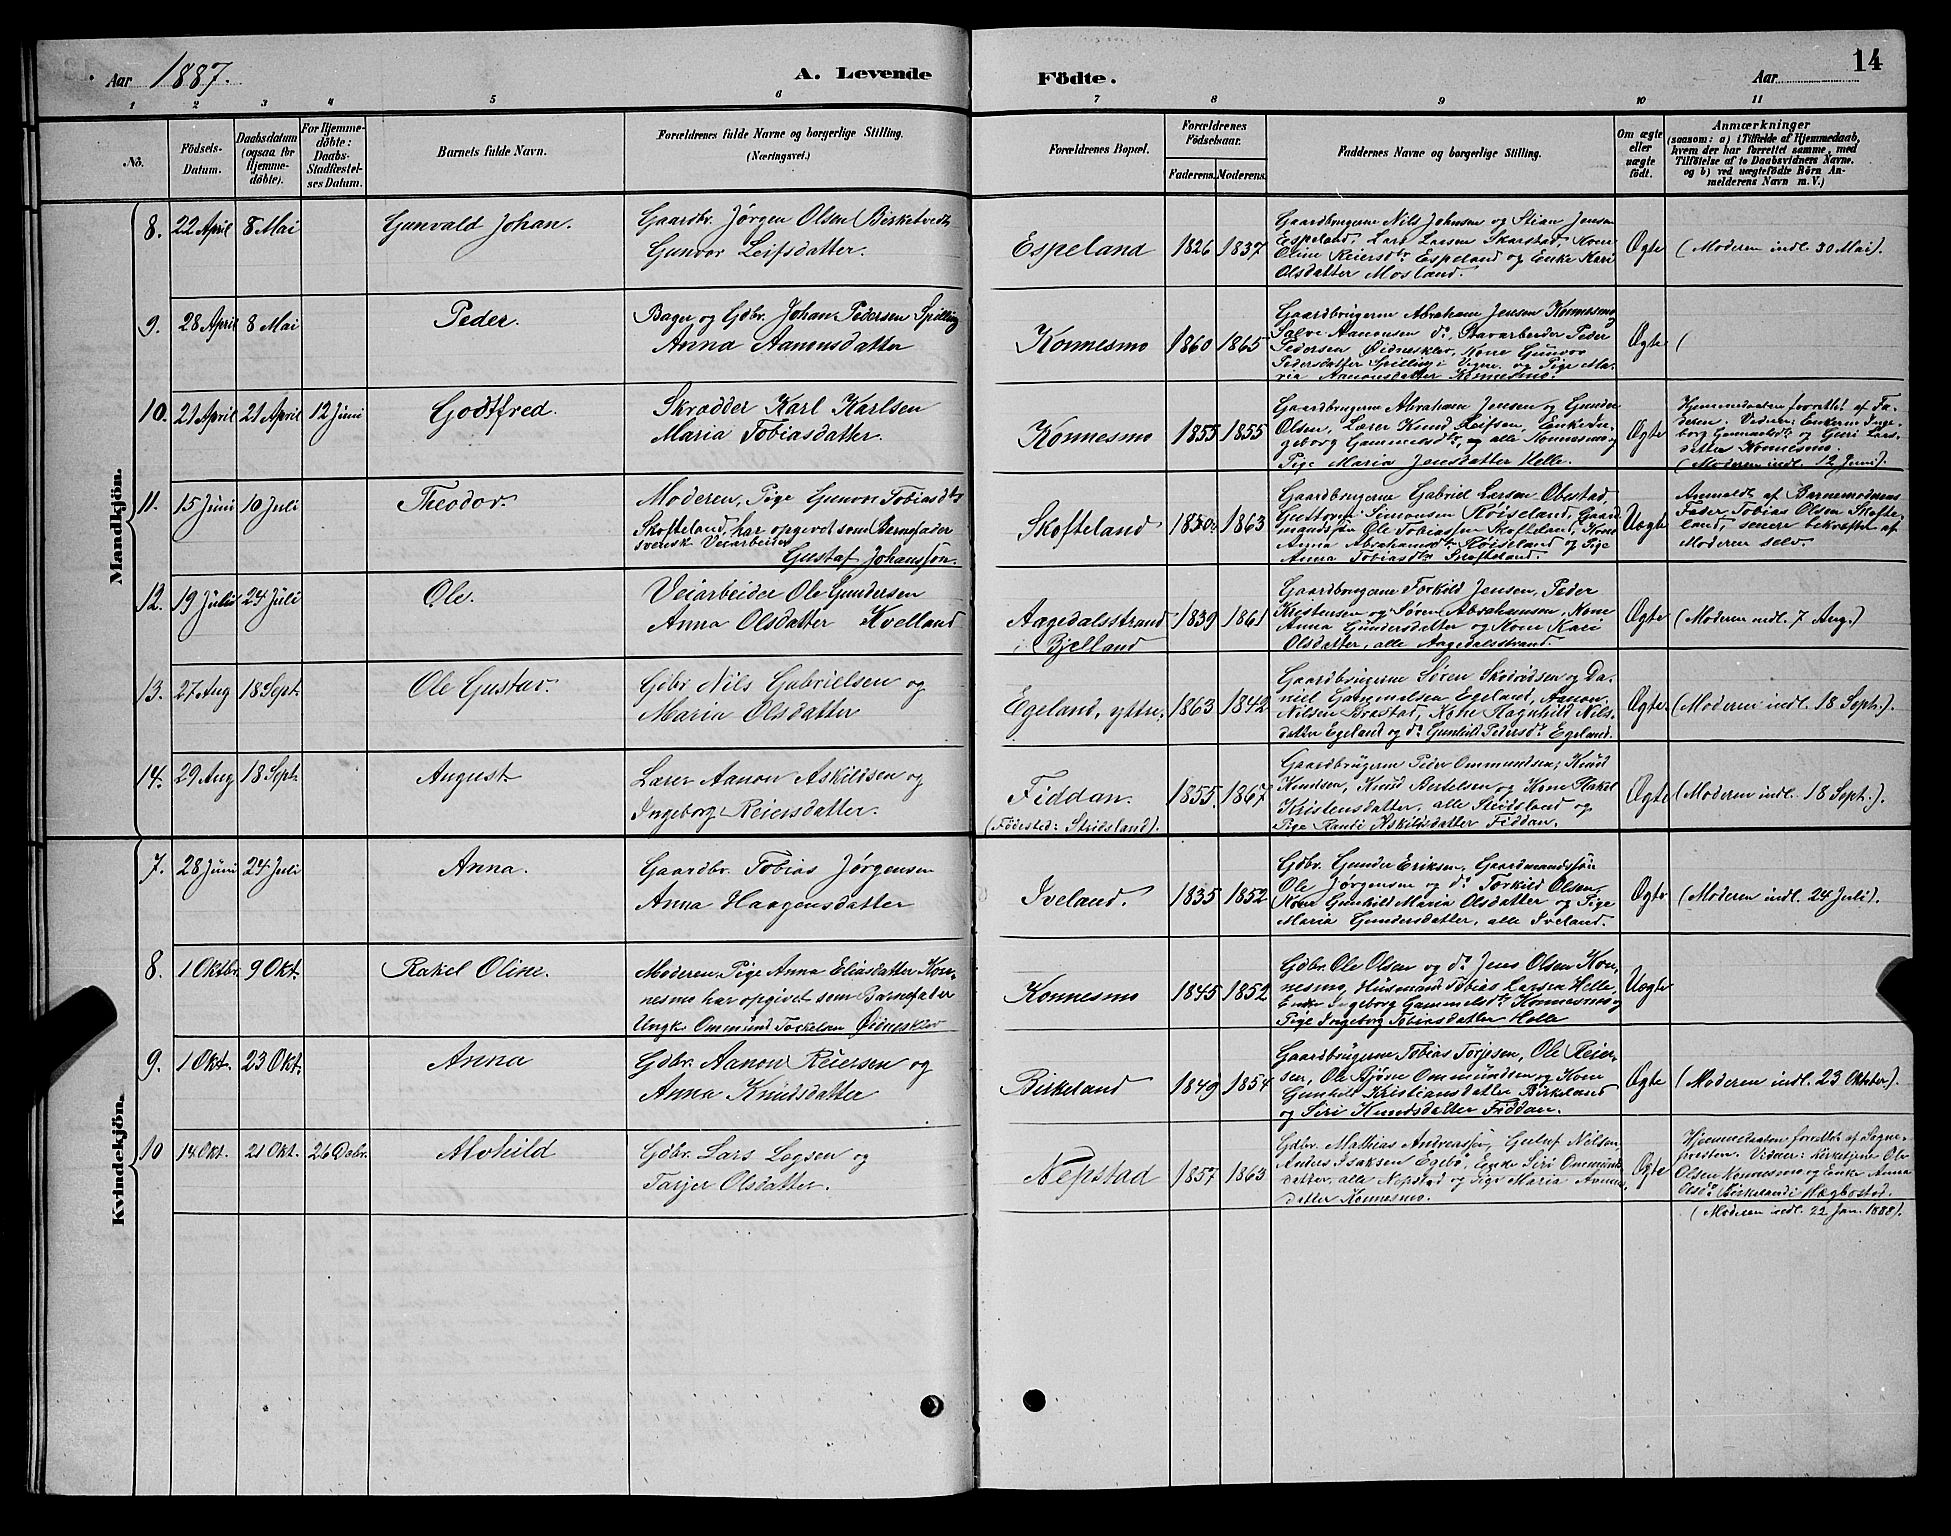 Aar 1887. A. Levende Födte. Aar 14
1 2 3 4 5 6 7 8 9 10 11
No.
Födsels-
Datum.
Daabsdatum
(ogsaa for
Hjemme-
døbte).
For Hjemme-
döbte:
Daabs-
Stadfæstel-
ses Datum.
Barnets fulde Navn.
Forældrenes fulde Navne og borgerlige Stilling.
(Næringsvei.)
Forældrenes Bopæl.
Forældrenes
Födselsaar.
Faderens. Moderens.
Faddernes Navne og borgerlige Stilling.
Om ægte
eller
uægte
födt.
Anmærkninger
(saasom: a) i Tilfælde af Hjemmedaab,
hvem der har forrettet samme, med
Tilföielse af to Daabsvidners Navne,
og b) ved uægtefödte Börn An-
melderens Navn m. V.)
Mandkjön.
8. 22 April 8 Mai Gunvald Johan.
Gaardbr. Jørgen Olsen Birketvedt
Gunvor Leifsdatter.
Espeland 1826 1837
Gaardbrugerne Nils Johnsen og Stian Jensen
Espeland, Lars Larsen Skarstad, Kone
Oline Reiersdr. Espeland og Enke Kari
Olsdatter Mosland.
Ægte (Moderen indl. 30 Mai).
9. 28 April 8 Mai Peder.
Bager og Gdbr. Johan Pedersen Spilling
Anna Aanonsdatter
Konnesmo 1860 1865
Gaardbrugerne Abraham Jensen Konnesmo,
Salve Aanonsen do, Bavarbeider Peder
Pedersen Øidneskler, Kone Gunvor
Pedersdatter Spilling i Vigne og Pige Ma-
ria Aanonsdatter Konnesmo.
Ægte (
10. 21 April 21 April 12 Juni Godtfred.
Skrædder Karl Karlsen
Maria Tobiasdatter.
Konnesmo 1855 1855
Gaardbrugerne Abraham Jensen og Gunder
Olsen, Lærer Knud Leifsen, Enke In-
geborg Gammelsdtr, og alle Konnesmo og
Pige Maria Jensdatter Helle.
Ægte
Hjemmedaaben forrettet af Fa-
deren. Vidner: Enkerne Inge-
borg Gammelsdtr og Guri Lars-
datter Konnesmo.
(Moderen indl. 12 Juni).
11. 15 Juni 10 Juli Theodor.
Moderen, Pige Gunvor Tobiasdtr
Skofteland, har opgivet som Barnefader
svensk Veiarbeider
Gustaf Johansson.
Skofteland 1850 1863
Gaardbrugerne Gabriel Larsen Obestad,
Guttorm Simonsen Röiseland, Gaard-
mandssøn Ole Tobiassen Skofteland, Kone
Anna Abrahamsdtr Röiseland og Pige
Anna Tobiasdtr Skofteland.
Uægte
Anmeldt af Barnemoderens
Fader Tobias Olsen Skofte-
land, senere bekræftet af
Moderen selv.
12. 19 Juli 24 Juli Ole.
Veiarbeider Ole Gundersen
Anna Olsdatter Kvelland
Aagedalsstrand
i Bjelland
1839 1861
Gaardbrugerne Torkild Jensen, Peder
Kristensen og Søren Abrahamsen, Kone
Anna Gundersdatter og Kone Kari
Olsdatter, alle Aagedalsstrand.
Ægte (Moderen indl. 7 Aug.)
13. 27 Aug 18 Sept. Ole Gustav.
Gdbr Nils Gabrielsen og
Maria Olsdatter
Egeland, yttre, 1863 1842
Gaardbrugerne Sören og Da-
niel Gammelsen Egeland, Aanon
Nilsen Brastad, Kone Ragnhild Nils-
datter Egeland og do Gunhild Pedersdr Egeland.
Ægte. (Moderen indl. 18 Sept.).
14. 29 Aug 18 Sept. August
Lærer Aanon Askildsen og
Ingeborg Reiersdatter.
Fiddan.
(Fødested: Stridsland).
1855. 1867
Gaardbrugerne Peder Ommundsen, Knud
Knudsen, Knud Bertelsen og Kone Rakel
Kristensdatter, alle Stridsland og
Pige Randi Askildsdatter Fiddan.
Ægte (Moderen indl. 18 Sept.).
Kvindekjön.
7. 28 Juni 24 Juli Anna.
Gaardbr. Tobias Jørgensen
Anna Haagensdatter
Iveland. 1835 1852
Gdbr. Gunder Eriksen, Gaardmandssön
Ole Jørgensen og do Torkild Olsen,
Kone Gunhild Maria Olsdatter og Pige
Maria Gundersdatter, alle Iveland.
Ægte (Moderen indl. 24 Juli).
8. 1 Oktbr. 9 Okt. Rakel Oline.
Moderen, Pige Anna Eliasdatter Kon-
nesmo har opgivet som Barnefader
Ungk. Ommund Torkelsen Øidneskler
Konnesmo 1845 1852
Gdbr. Ole Olsen og do Jens Olsen Kon-
nesmo, Husmand Tobias Larsen Helle,
Enke Ingeborg Gammelsdtr Konnesmo og
Pige Ingeborg Tobiasdatter Helle
Uægte
9. 1 Okt. 23 Okt. Anna
Gdbr. Aanon Reiersen og
Anna Knudsdatter
Birkeland 1849 1854
Gaardbrugerne Tobias Torjesen, Ole Reier-
sen, Ole Bjørn Ommundsen og Kone
Gunhild Kristiansdatter Birkeland
og Siri Knudsdatter Fiddan.
Ægte (Moderen indl. 23 Oktober).
10 14 Okt. 21 Okt. 26 Debr. Alvhild
Gdbr. Lars Legsen og
Tarjer Olsdatter.
Nepstad 1857 1863
Gdbr. Mathias Andreassen, Gutuf Nilsen,
Anders Isaksen Egebö, Enke Siri Ommunds-
datter, alle Nepstad og Pige Maria
datter Konnesmo.
Ægte
Hjemmedaaben forrettet af Sogne-
presten. Vidner: Kirketjener Ole
Olsen Konnesmo og Enke Anna
Olsdr Birkeland i Hægbostad.
(Moderen indl. 22 Jan. 1888).